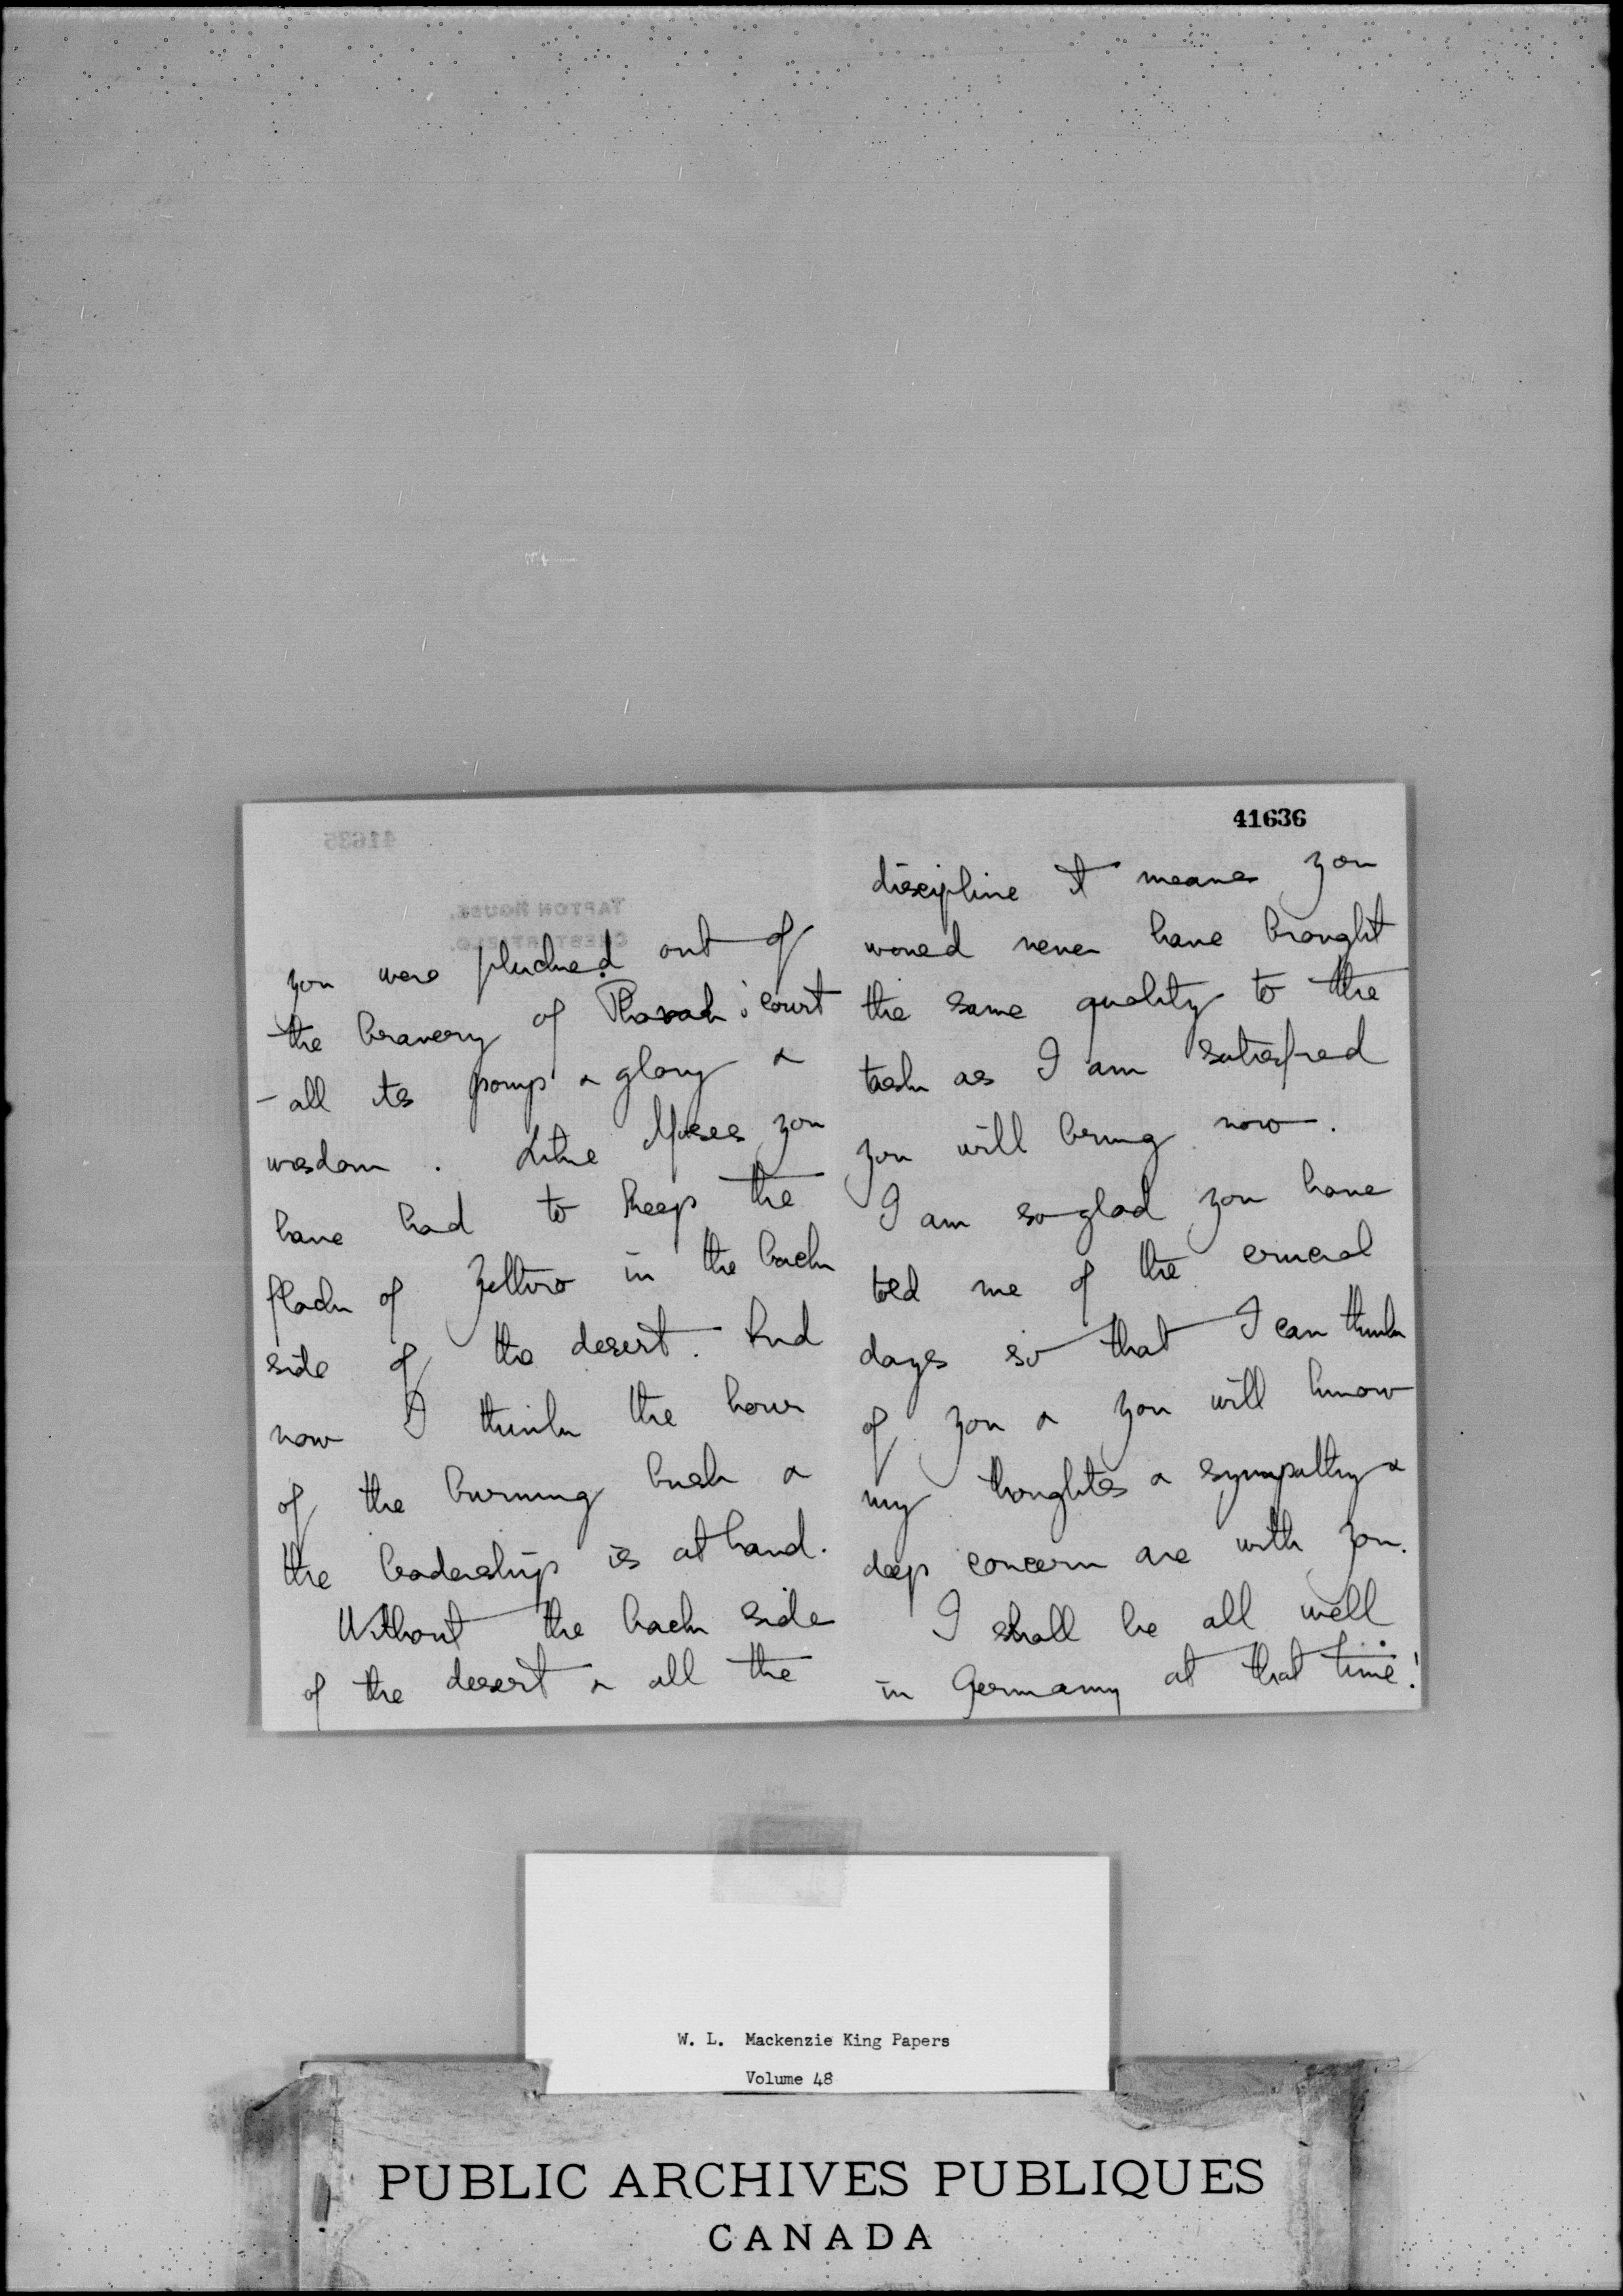 41636
you were plucked out of
the bravery of Pharaoh's court
- all its pomp & glory &
wisdom. Like Moses you
have had to keep the
flock of Jethro in the back
side of the desert. And
now I think the hour
of the burning bush &
the leadership is at hand.
Without the back side
of the desert & all the
discipline it means you
would never have brought
the same quality to the
task as I am satisfied
you will bring now.
I am so glad you have
told me of the crucial
days so that I can think
of you & you will know
my thoughts & sympathy &
deep concern are with you.
I shall be all well
in Germany at that time!
41635
TAPTON HOUSE,
CHESTERFIELD.
W. L. Mackenzie King Papers
Volume 48
PUBLIC ARCHIVES PUBLIQUES
CANADA